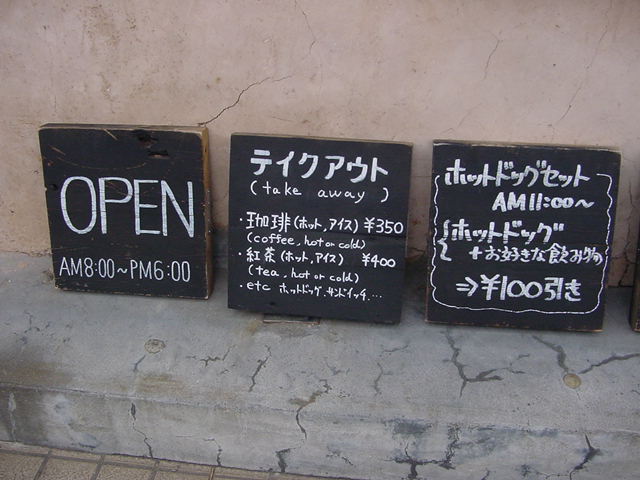 OPEN
AM8:00~PM6:00
テイクアウト
(take away)
・珈琲(ホット,アイス) ¥350
(coffee, hot or cold)
・紅茶(ホット,アイス) ¥400
(tea, hot or cold)
・etc ホットドッグ,サンドイッチ...
ホットドッグセット
AM11:00~
ホットドッグ
+お好きな飲み物
⇒¥100引き